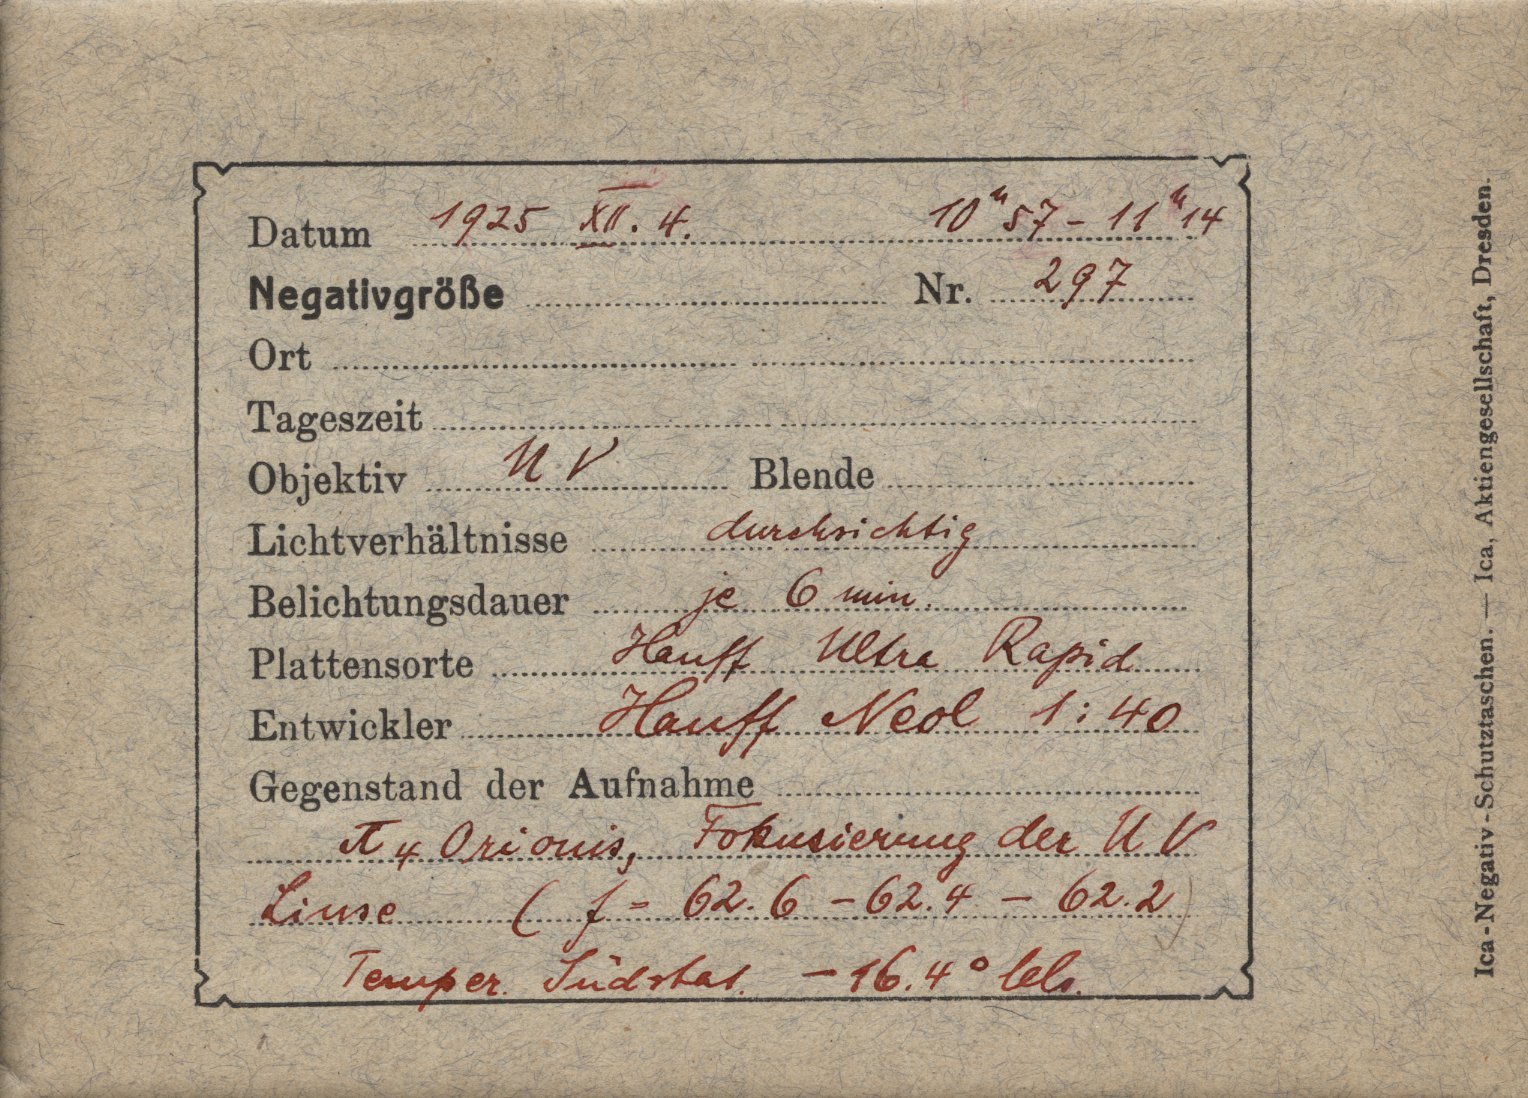 Datum 1925 XII. 4. 10ʰ57 - 11ʰ14
Negativgröße Nr. 297
Ort
Tageszeit
Objektiv UV Blende
Lichtverhältnisse durchsichtig
Belichtungsdauer je 6 min.
Plattensorte Hauff Ultra Rapid
Entwickler Hauff Neol 1:40
Gegenstand der Aufnahme
π4 Orionis, Fokusierung der UV
Linse (f = 62.6 - 62.4 - 62.2)
Temper. Südstat. -16.4° Cels.
Ica-Negativ-Schutztaschen. — Ica, Aktiengesellschaft, Dresden.